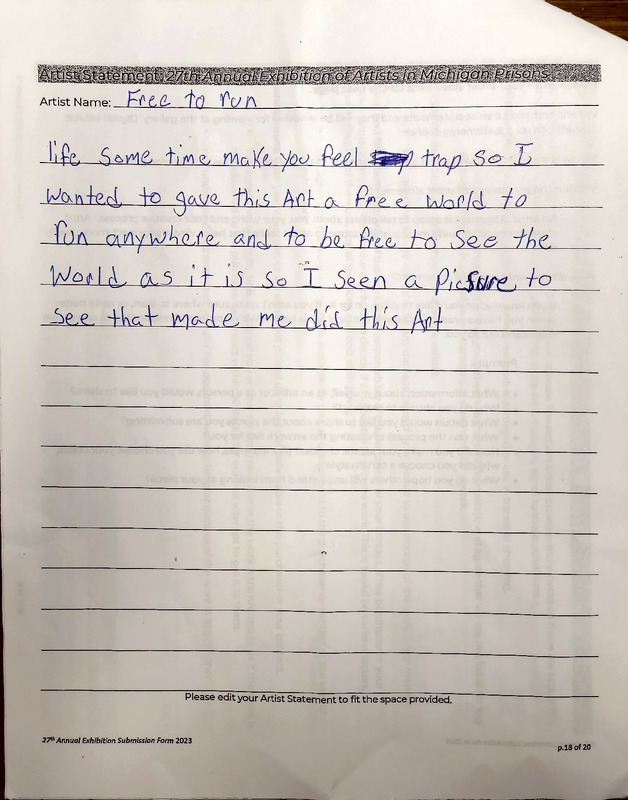 Artist Statement: 27th Annual Exhibition of Artists in Michigan Prisons
Artist Name: Free to run
life some time make you feel trap so I
wanted to gave this Art a free world to
run anywhere and to be free to see the
World as it is so I seen a Picture to
see that made me did this Art
Please edit your Artist Statement to fit the space provided.
27th Annual Exhibition Submission Form 2023
p.18 of 20